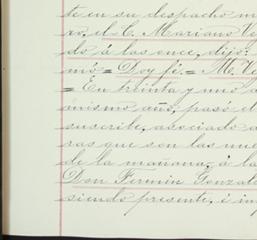 te en su despacho m
ro, el C. Mariano Ve
do á las once, dijo:
mó = Doy fé = M. Ve
= En treinta y uno d
mismo año, pasó el
suscribe, asociado a
ras que son las nue
de la mañana, á la
Don Fermin Gonzale
siendo presente, é im